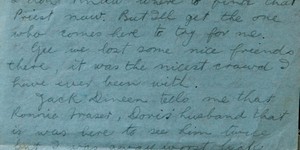 Priest now. But Ill get the one
who comes here to tog for me.
Gee we lost some nice friends
there it was the nicest crowd I
have ever been with.
Jack Dineen tells me that
Ronnie Fraser, Doris husband that
is was here to see him twice